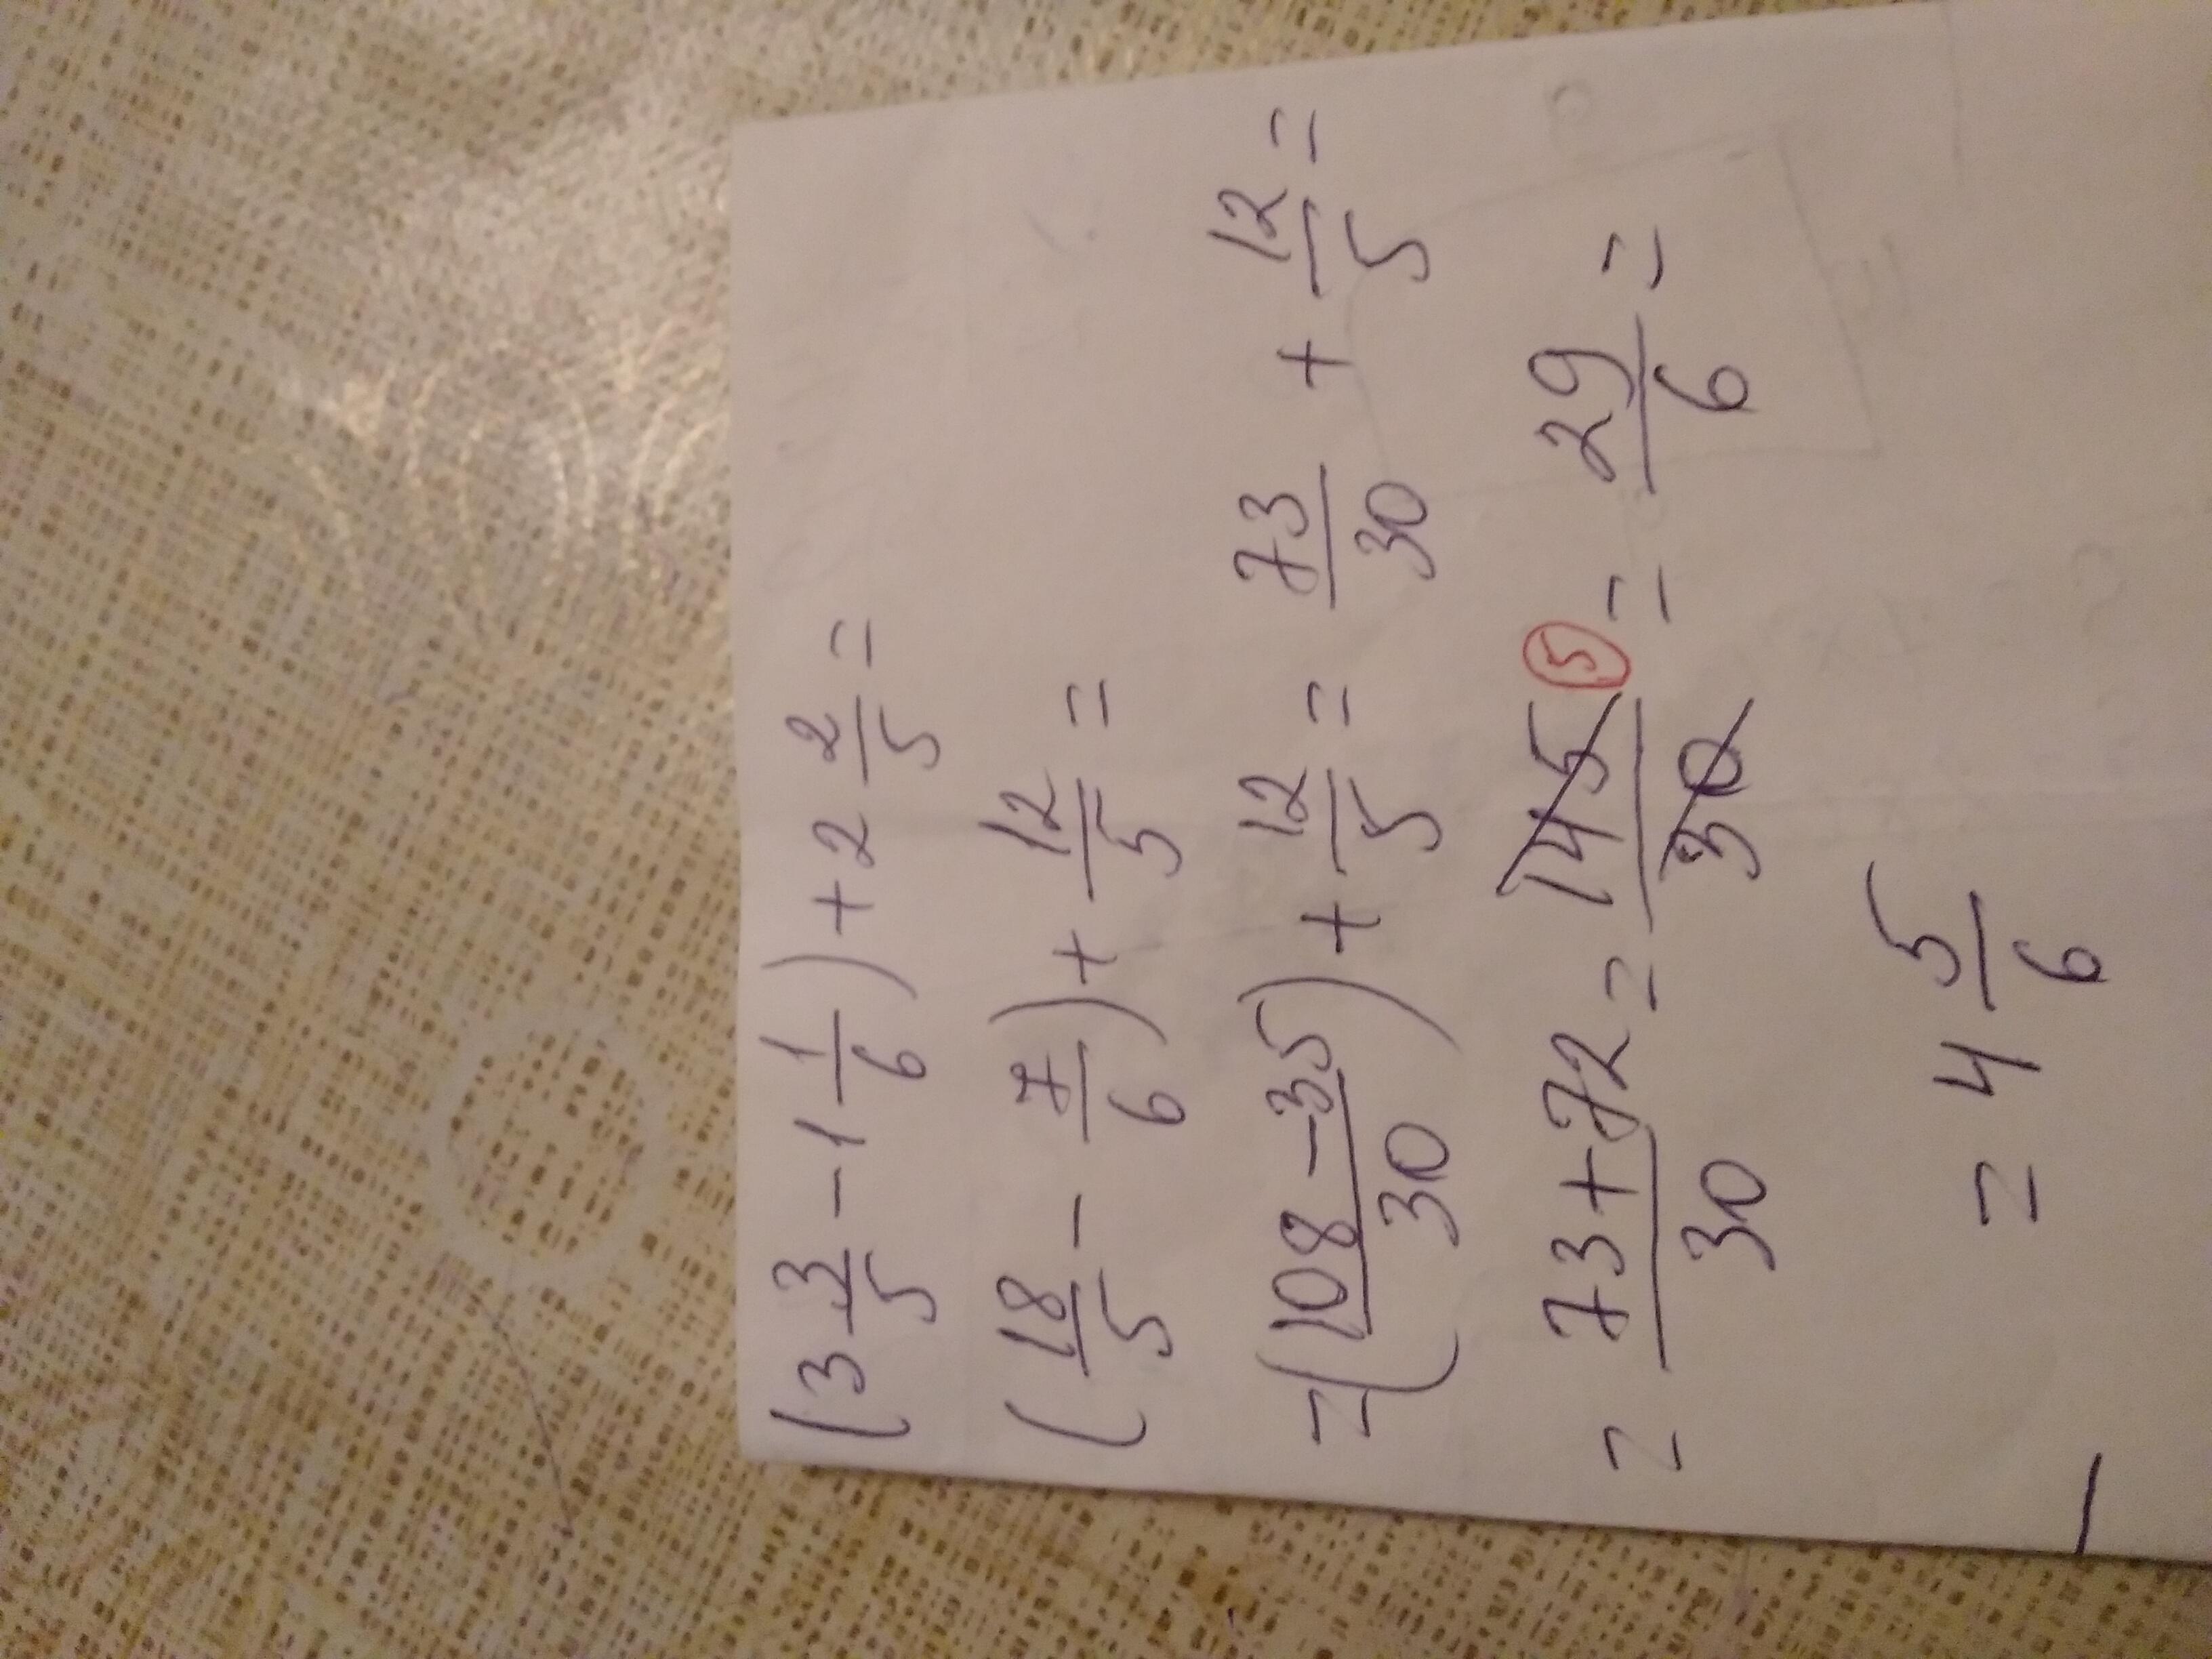 (3 3/5 - 1 1/6) + 2 2/5 =
(18/5 - 7/6) + 12/5 =
= (108 - 35/30) + 12/5 = 73/30 + 12/5 =
= 73 + 72/30 = 145/30 (5) = 29/6 =
= 4 5/6